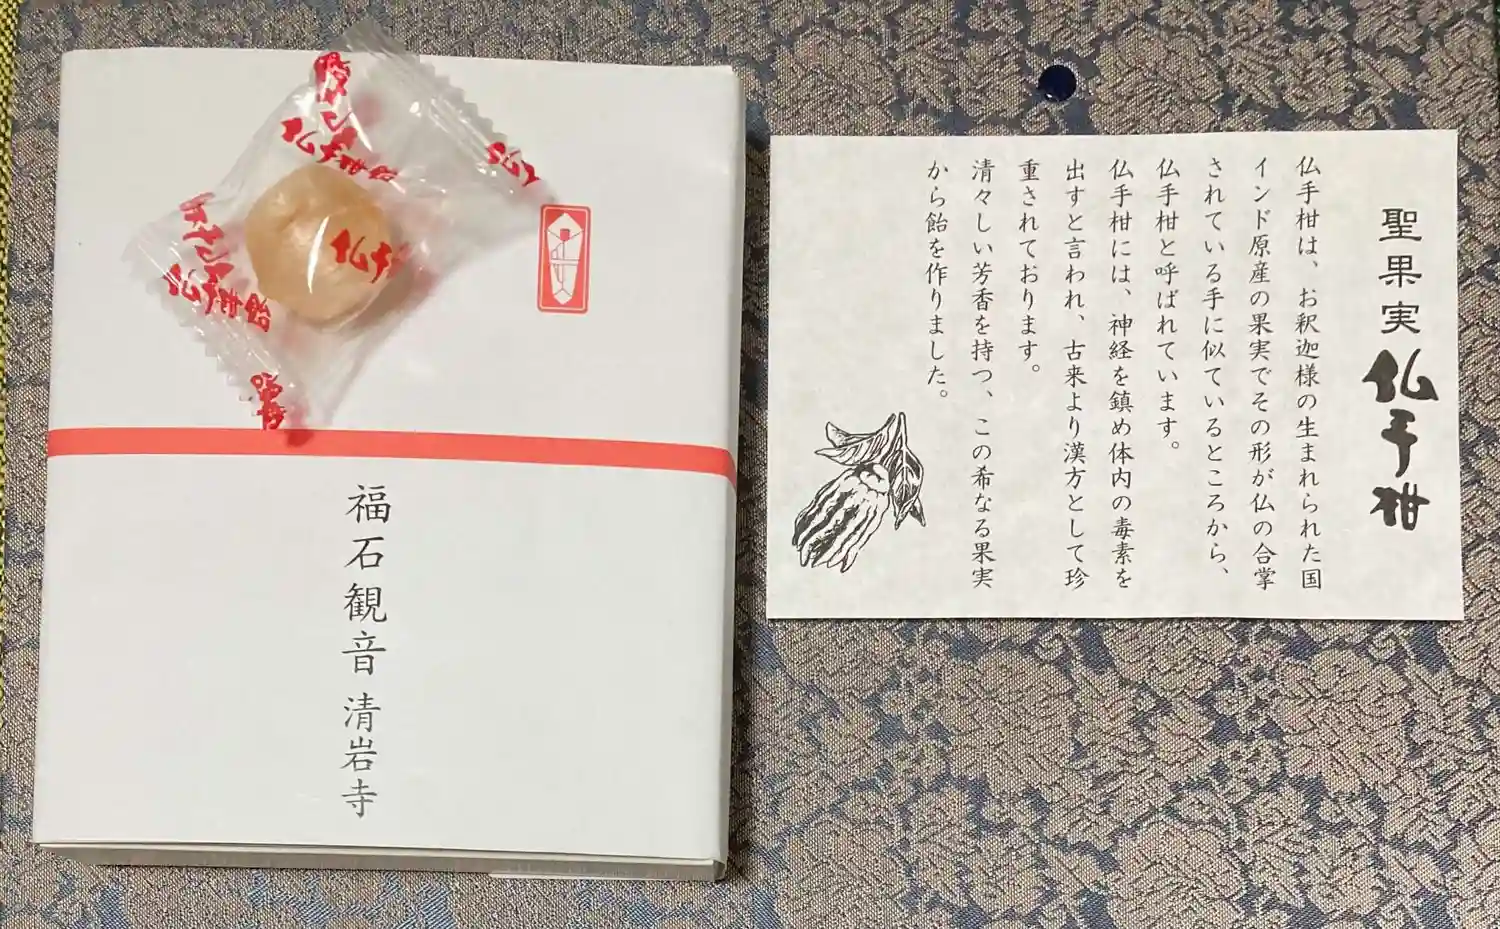 聖果実 仏手柑
仏手柑は、お釈迦様の生まれられた国
インド原産の果実でその形が仏の合掌
されている手に似ているところから、
仏手柑と呼ばれています。
仏手柑には、神経を鎮め体内の毒素を
出すと言われ、古来より漢方として珍
重されております。
清々しい芳香を持つ、この希なる果実
から飴を作りました。
福石観音 清岩寺
仏手柑飴
仏手